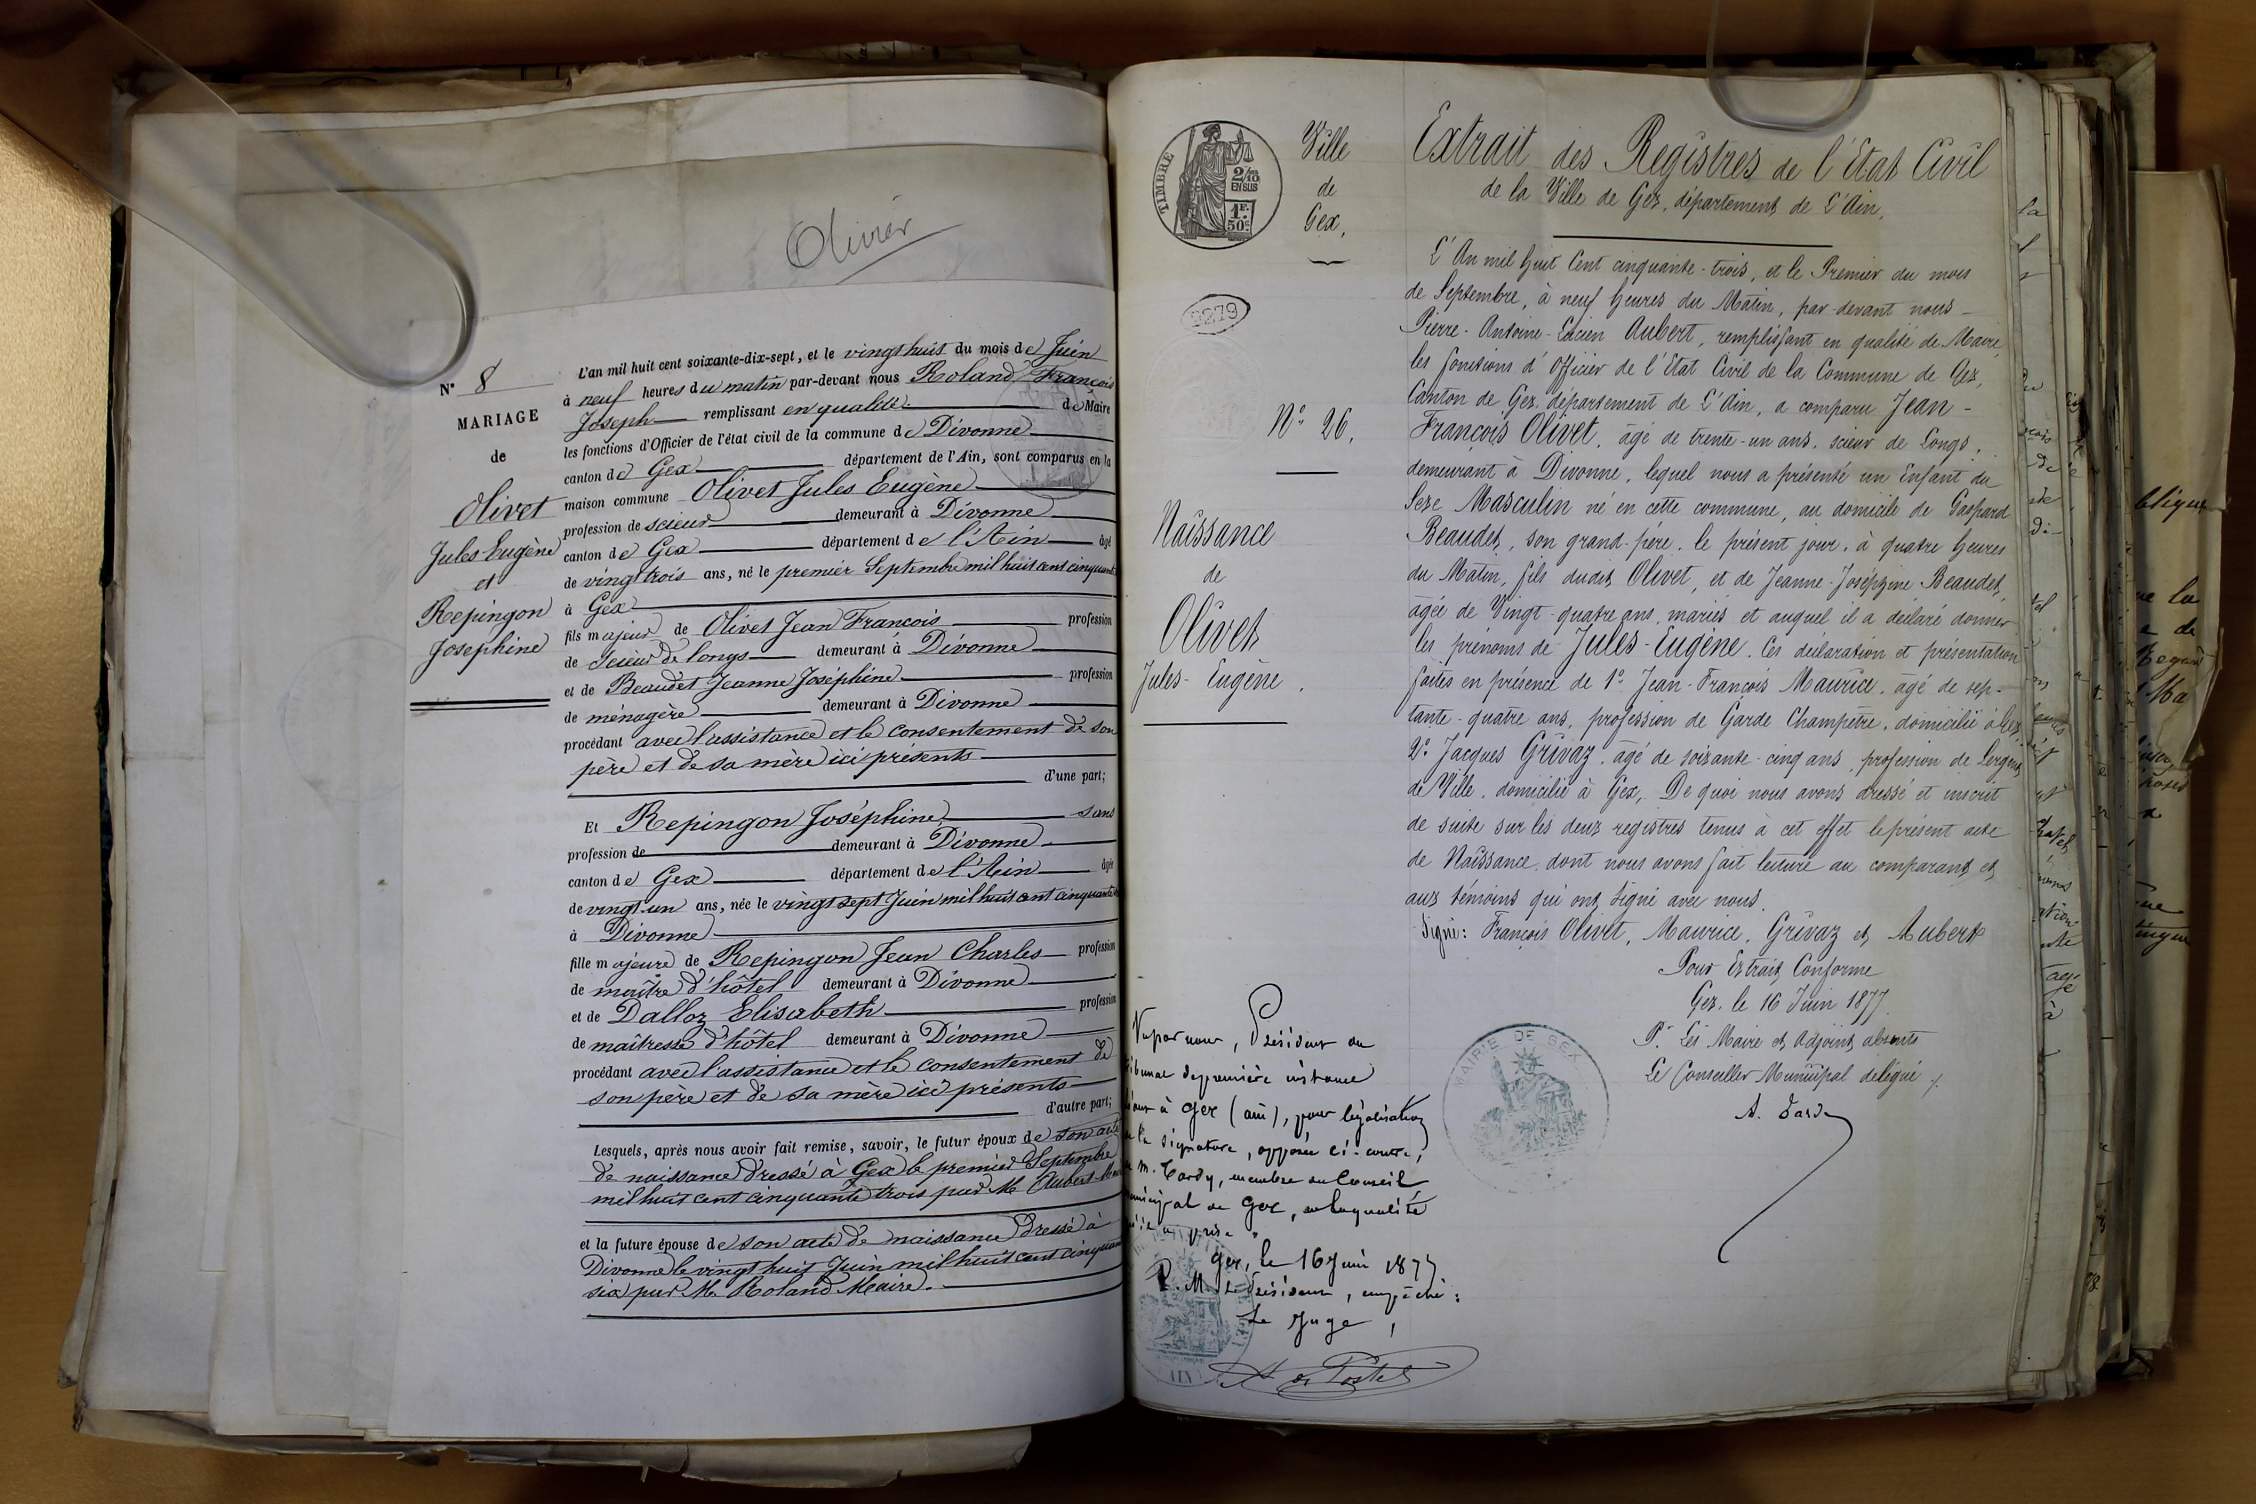 Olivier
N° 8
MARIAGE
de
Olivet
Jules Eugène
et
Repingon
Josephine
L'an mil huit cent soixante-dix-sept, et le vingt huit du mois de Juin
à neuf heures du matin par-devant nous Roland François
Joseph remplissant en qualité de Maire
les fonctions d'Officier de l'état civil de la commune de Divonne
canton de Gex département de l'Ain, sont comparus en la
maison commune Olivet Jules Eugène
profession de scieur demeurant à Divonne
canton de Gex département de l'Ain âgé
de vingt trois ans, né le premier Septembre mil huit cent cinquante
à Gex
fils majeur de Olivet Jean François profession
de scieur de longs demeurant à Divonne
et de Beaudet Jeanne Joséphine profession
de ménagère demeurant à Divonne
procédant avec l'assistance et le consentement de son
père et de sa mère ici présents
d'une part;
Et Repingon Joséphine sans
profession de demeurant à Divonne
canton de Gex département de l'Ain âgée
de vingt un ans, née le vingt sept Juin mil huit cent cinquante
à Divonne
fille majeure de Repingon Jean Charles profession
de maître d'hôtel demeurant à Divonne
et de Dalloz Elisabeth profession
de maîtresse d'hôtel demeurant à Divonne
procédant avec l'assistance et le consentement de
son père et de sa mère ici présents
d'autre part;
Lesquels, après nous avoir fait remise, savoir, le futur époux de son acte
de naissance dressé à Gex le premier Septembre
mil huit cent cinquante trois par M. Aubert
et la future épouse de son acte de naissance dressé à
Divonne le vingt huit Juin mil huit cent cinquante
six par M. Roland Maire.
TIMBRE
2/10 EN SUS
1F. 50c
Ville
de
Gex,
9279
N° 26.
Naissance
de
Olivet
Jules-Eugène.
Extrait des Registres de l'Etat Civil
de la Ville de Gex, département de l'Ain,
L'An mil huit Cent cinquante-trois, et le Premier du mois
de Septembre, à neuf heures du Matin, par-devant nous
Pierre-Antoine-Lucien Aubert, remplissant en qualité de Maire,
les fonctions d'Officier de l'Etat Civil de la Commune de Gex,
Canton de Gex, département de L'Ain, a comparu Jean-
François Olivet, âgé de trente-un ans, scieur de Longs,
demeurant à Divonne, lequel nous a présenté un Enfant du
Sexe Masculin né en cette commune, au domicile de Gaspard
Beaudet, son grand-père, le présent jour, à quatre heures
du Matin, fils dudit Olivet, et de Jeanne-Joséphine Beaudet,
âgée de Vingt-quatre ans, mariés et auquel il a déclaré donner
les prénoms de Jules-Eugène. Ces déclaration et présentation
faites en présence de 1° Jean-François Maurice, âgé de sep-
tante-quatre ans, profession de Garde Champêtre, domicilié à Gex
2° Jacques Grivaz, âgé de soixante-cinq ans, profession de Sergent
de Ville, domicilié à Gex,. De quoi nous avons dressé et inscrit
de suite sur les deux registres tenus à cet effet le présent acte
de Naissance dont nous avons fait lecture au comparant et
aux témoins qui ont signé avec nous.
Signé: François Olivet, Maurice, Grivaz et Aubert
Pour Extrait Conforme
Gex, le 16 Juin 1877
Pr. Les Maire et Adjoint absents
Le Conseiller Municipal délégué
MAIRIE DE GEX
Vu par nous, Président du
tribunal de première instance
à Gex (ain), pour légalisation
de la signature, apposée ci-contre,
de m. Tardy, membre du Conseil
municipal de Gex, en la qualité
qu'il a prise.
Gex, le 16 Juin 1877
P. M. le Président, empêché:
Le Juge,
AIN